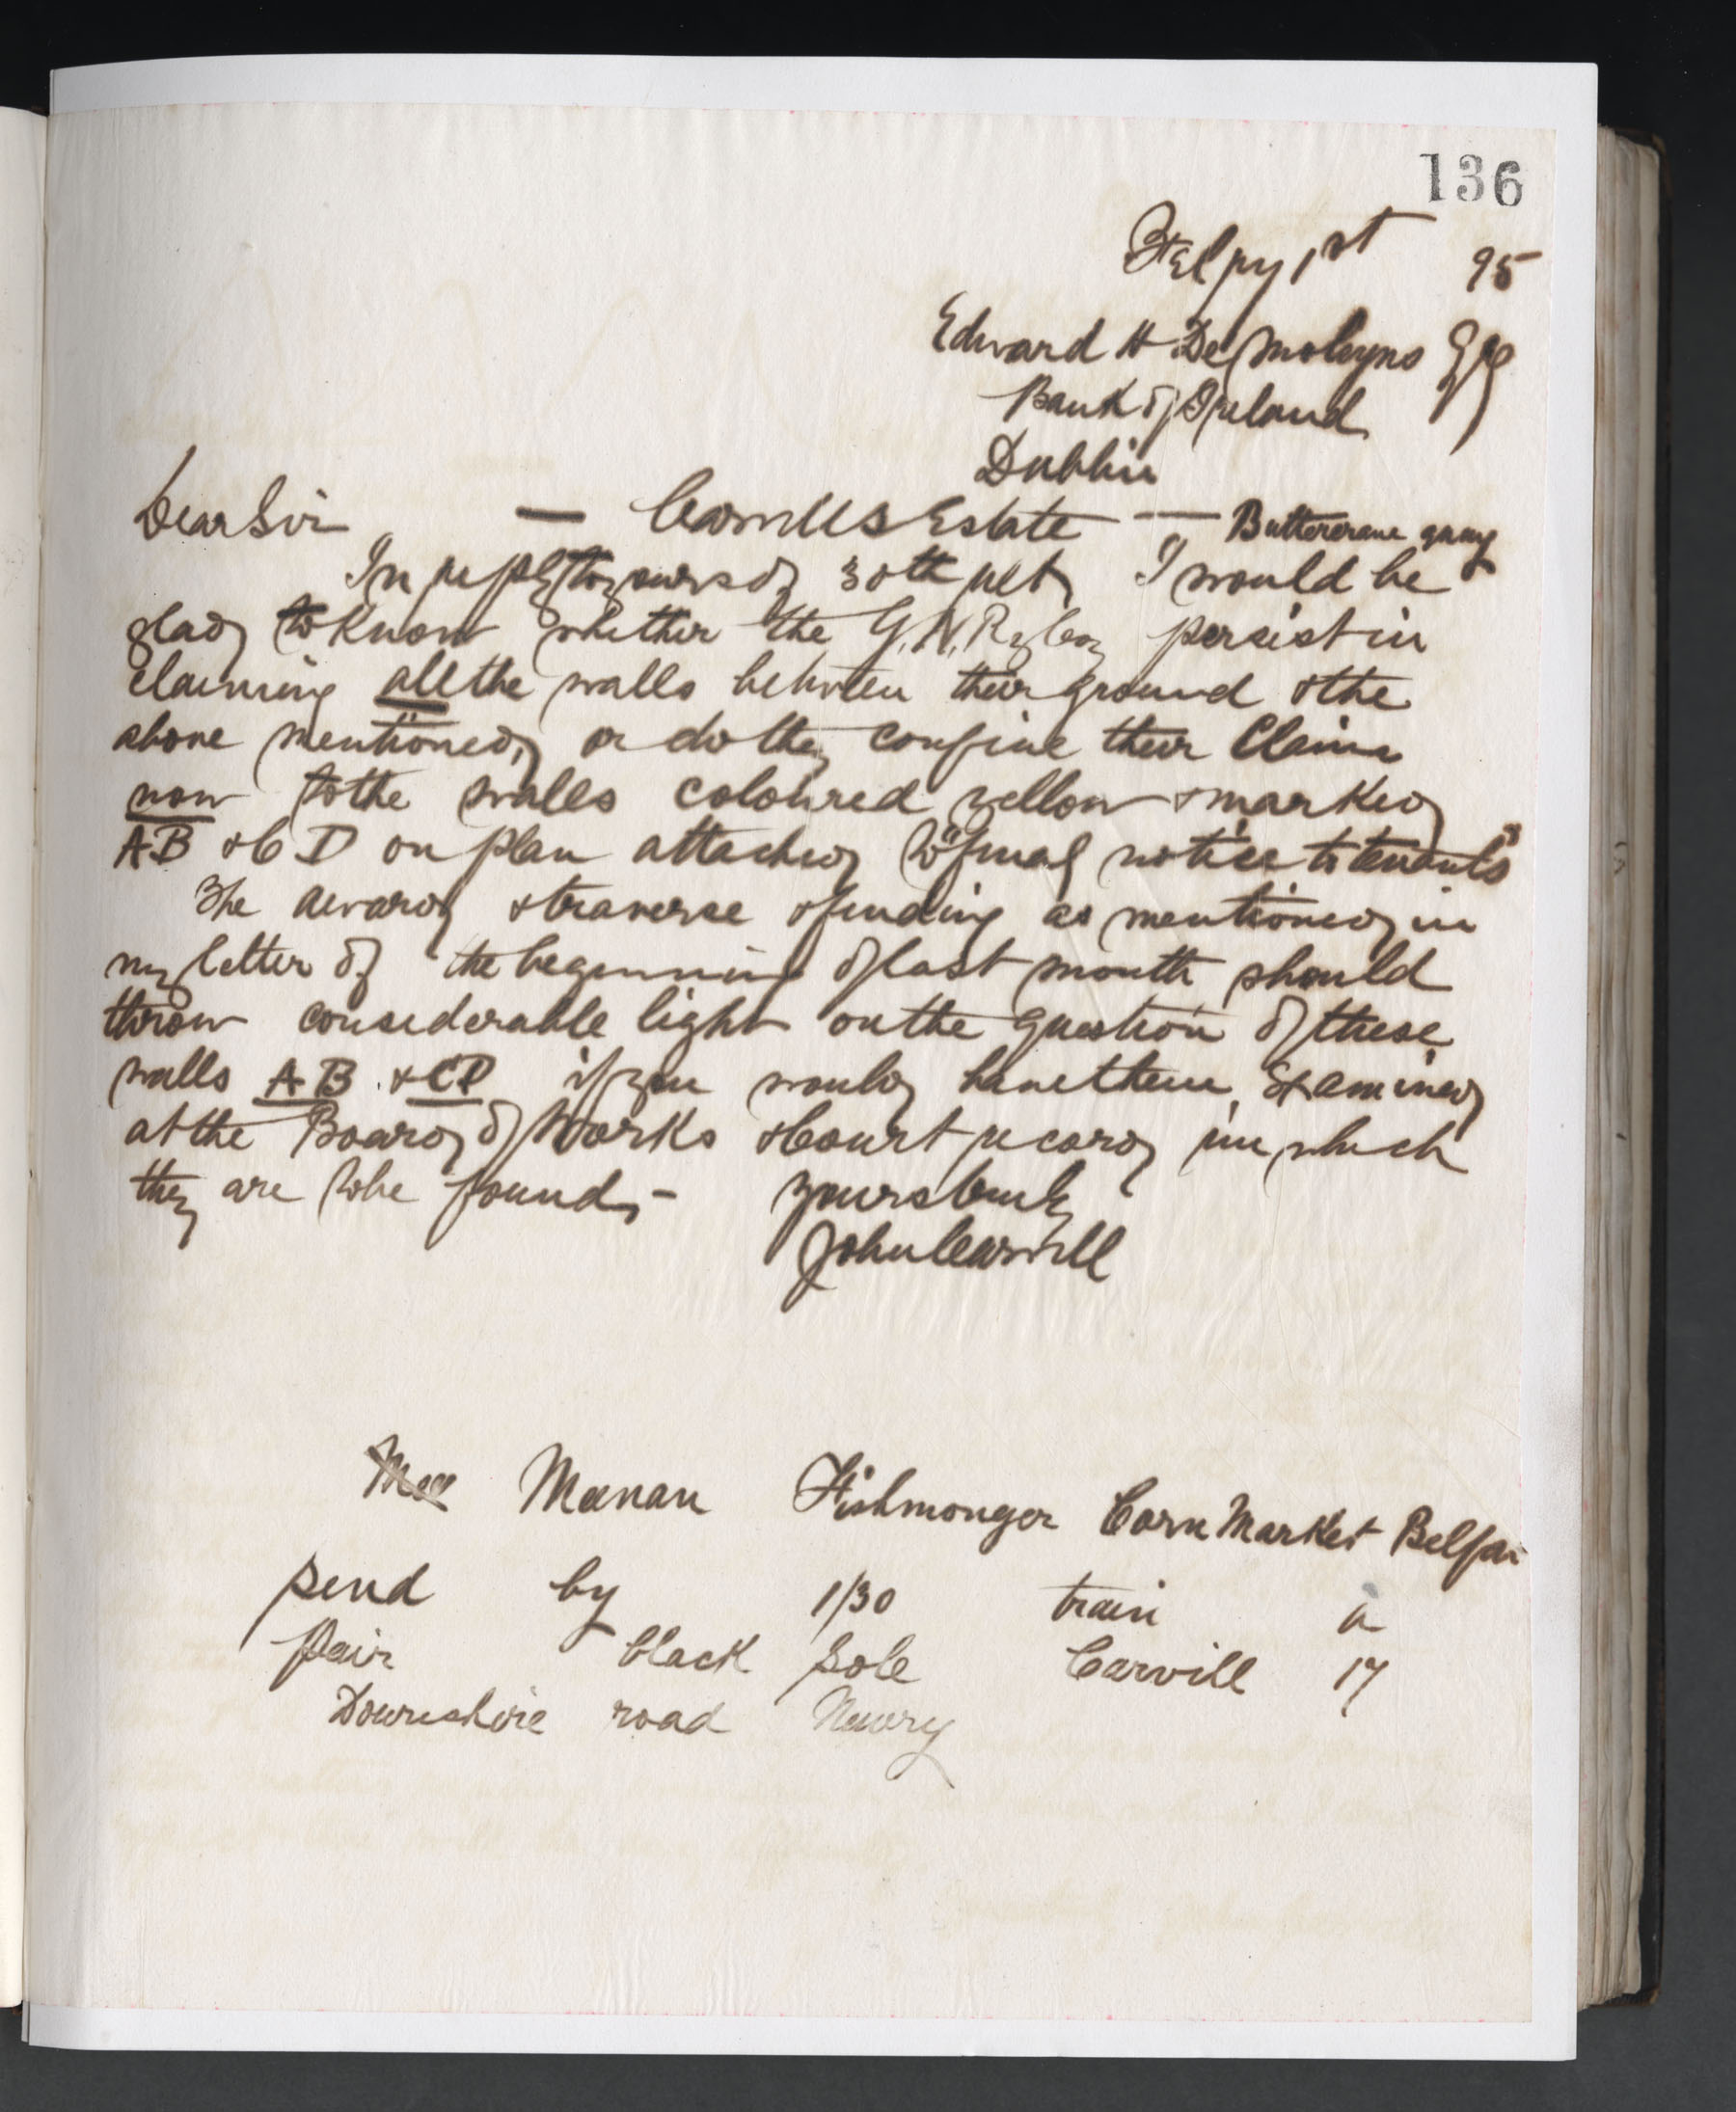 136
Feby 1st 95
Edward H DeMoleyns Esq
Bank of Ireland
Dublin
Dear Sir — Carvills Estate — Buttercrane quay
In reply to yours of 30th ult, I would be
glad to know whether the G.N. Ry Coy persist in
claiming all the walls between their ground & the
above mentioned, or do they confine their Claim
now to the walls coloured yellow & marked
AB & CD on plan attached to "final notice to tenants"
The award & traverse & finding as mentioned in
my letter of the beginning of last month should
throw considerable light on the question of these
walls AB & CD if you would have them examined
at the Board of Works & Court record in which
they are to be found, -
Yours truly
John Carvill
Meenan Fishmonger Corn Market Belfas
send by 1/30 train a
pair black sole Carvill 17
Downshire road Newry